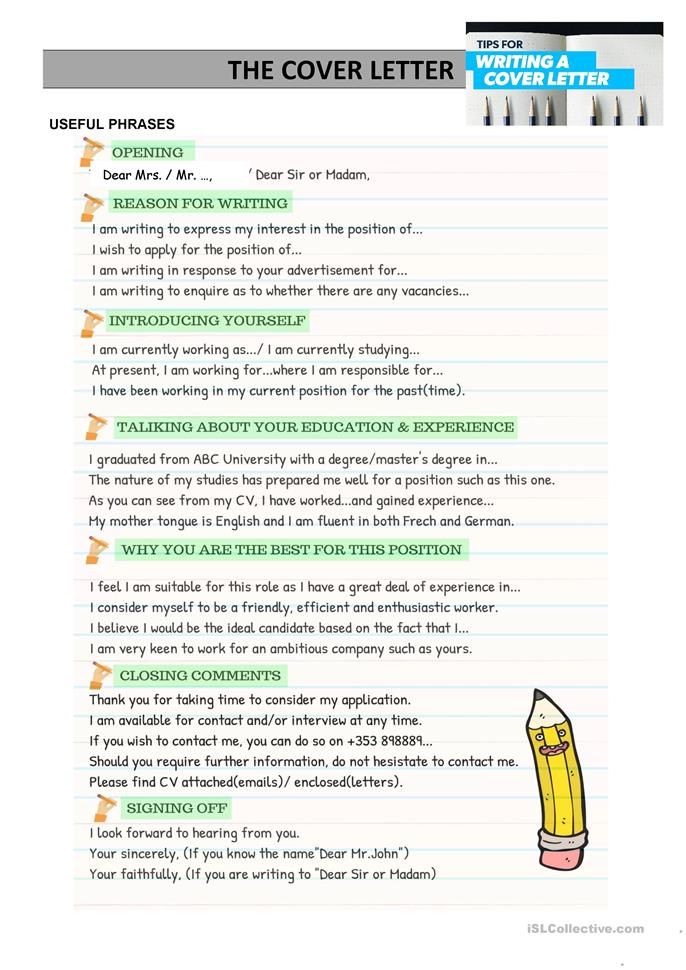 TIPS FOR
WRITING A
COVER LETTER
THE COVER LETTER
USEFUL PHRASES
OPENING
Dear Mrs. / Mr. …, / Dear Sir or Madam,
REASON FOR WRITING
I am writing to express my interest in the position of...
I wish to apply for the position of...
I am writing in response to your advertisement for...
I am writing to enquire as to whether there are any vacancies...
INTRODUCING YOURSELF
I am currently working as.../ I am currently studying...
At present, I am working for...where I am responsible for...
I have been working in my current position for the past(time).
TALIKING ABOUT YOUR EDUCATION & EXPERIENCE
I graduated from ABC University with a degree/master's degree in...
The nature of my studies has prepared me well for a position such as this one.
As you can see from my CV, I have worked...and gained experience...
My mother tongue is English and I am fluent in both Frech and German.
WHY YOU ARE THE BEST FOR THIS POSITION
I feel I am suitable for this role as I have a great deal of experience in...
I consider myself to be a friendly, efficient and enthusiastic worker.
I believe I would be the ideal candidate based on the fact that I...
I am very keen to work for an ambitious company such as yours.
CLOSING COMMENTS
Thank you for taking time to consider my application.
I am available for contact and/or interview at any time.
If you wish to contact me, you can do so on +353 898889...
Should you require further information, do not hesistate to contact me.
Please find CV attached(emails)/ enclosed(letters).
SIGNING OFF
I look forward to hearing from you.
Your sincerely, (If you know the name"Dear Mr.John")
Your faithfully, (If you are writing to "Dear Sir or Madam)
iSLCollective.com